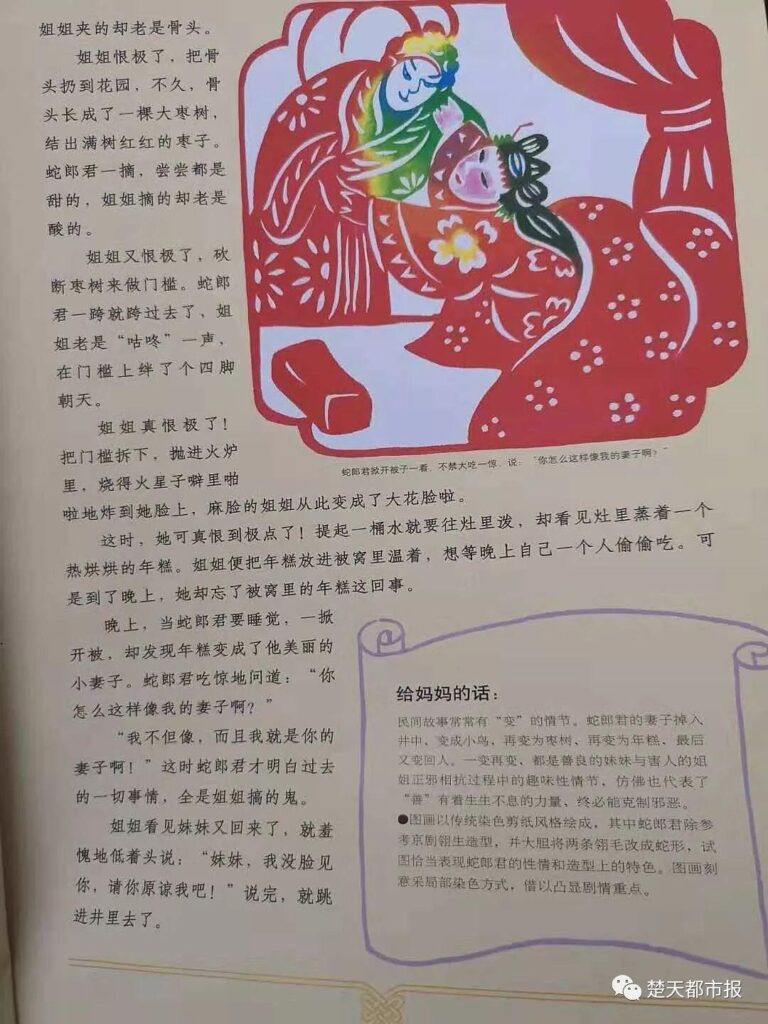 姐姐夹的却老是骨头。
姐姐恨极了，把骨
头扔到花园，不久，骨
头长成了一棵大枣树，
结出满树红红的枣子。
蛇郎君一摘，尝尝都是
甜的，姐姐摘的却老是
酸的。
姐姐又恨极了，砍
断枣树来做门槛。蛇郎
君一跨就跨过去了，姐
姐老是“咕咚”一声，
在门槛上绊了个四脚
朝天。
姐姐真恨极了！
把门槛拆下，抛进火炉
里，烧得火星子噼里啪
啦地炸到她脸上，麻脸的姐姐从此变成了大花脸啦。
这时，她可真恨到极点了！提起一桶水就要往灶里泼，却看见灶里蒸着一个
热烘烘的年糕。姐姐便把年糕放进被窝里温着，想等晚上自己一个人偷偷吃。可
是到了晚上，她却忘了被窝里的年糕这回事。
晚上，当蛇郎君要睡觉，一掀
开被，却发现年糕变成了他美丽的
小妻子。蛇郎君吃惊地问道：“你
怎么这样像我的妻子啊？”
“我不但像，而且我就是你的
妻子啊！”这时蛇郎君才明白过去
的一切事情，全是姐姐搞的鬼。
姐姐看见妹妹又回来了，就羞
愧地低着头说：“妹妹，我没脸见
你，请你原谅我吧！”说完，就跳
进井里去了。
蛇郎君掀开被子一看，不禁大吃一惊，说：“你怎么这样像我的妻子啊？”
给妈妈的话：
民间故事常常有“变”的情节。蛇郎君的妻子掉入
井中，变成小鸟，再变为枣树，再变为年糕，最后
又变回人。一变再变，都是善良的妹妹与害人的姐
姐正邪相抗过程中的趣味性情节，仿佛也代表了
“善”有着生生不息的力量，终必能克制邪恶。
●图画以传统染色剪纸风格绘成，其中蛇郎君除参
考京剧翎生造型，并大胆将两条翎毛改成蛇形，试
图恰当表现蛇郎君的性情和造型上的特色。图画刻
意采局部染色方式，借以凸显剧情重点。
楚天都市报